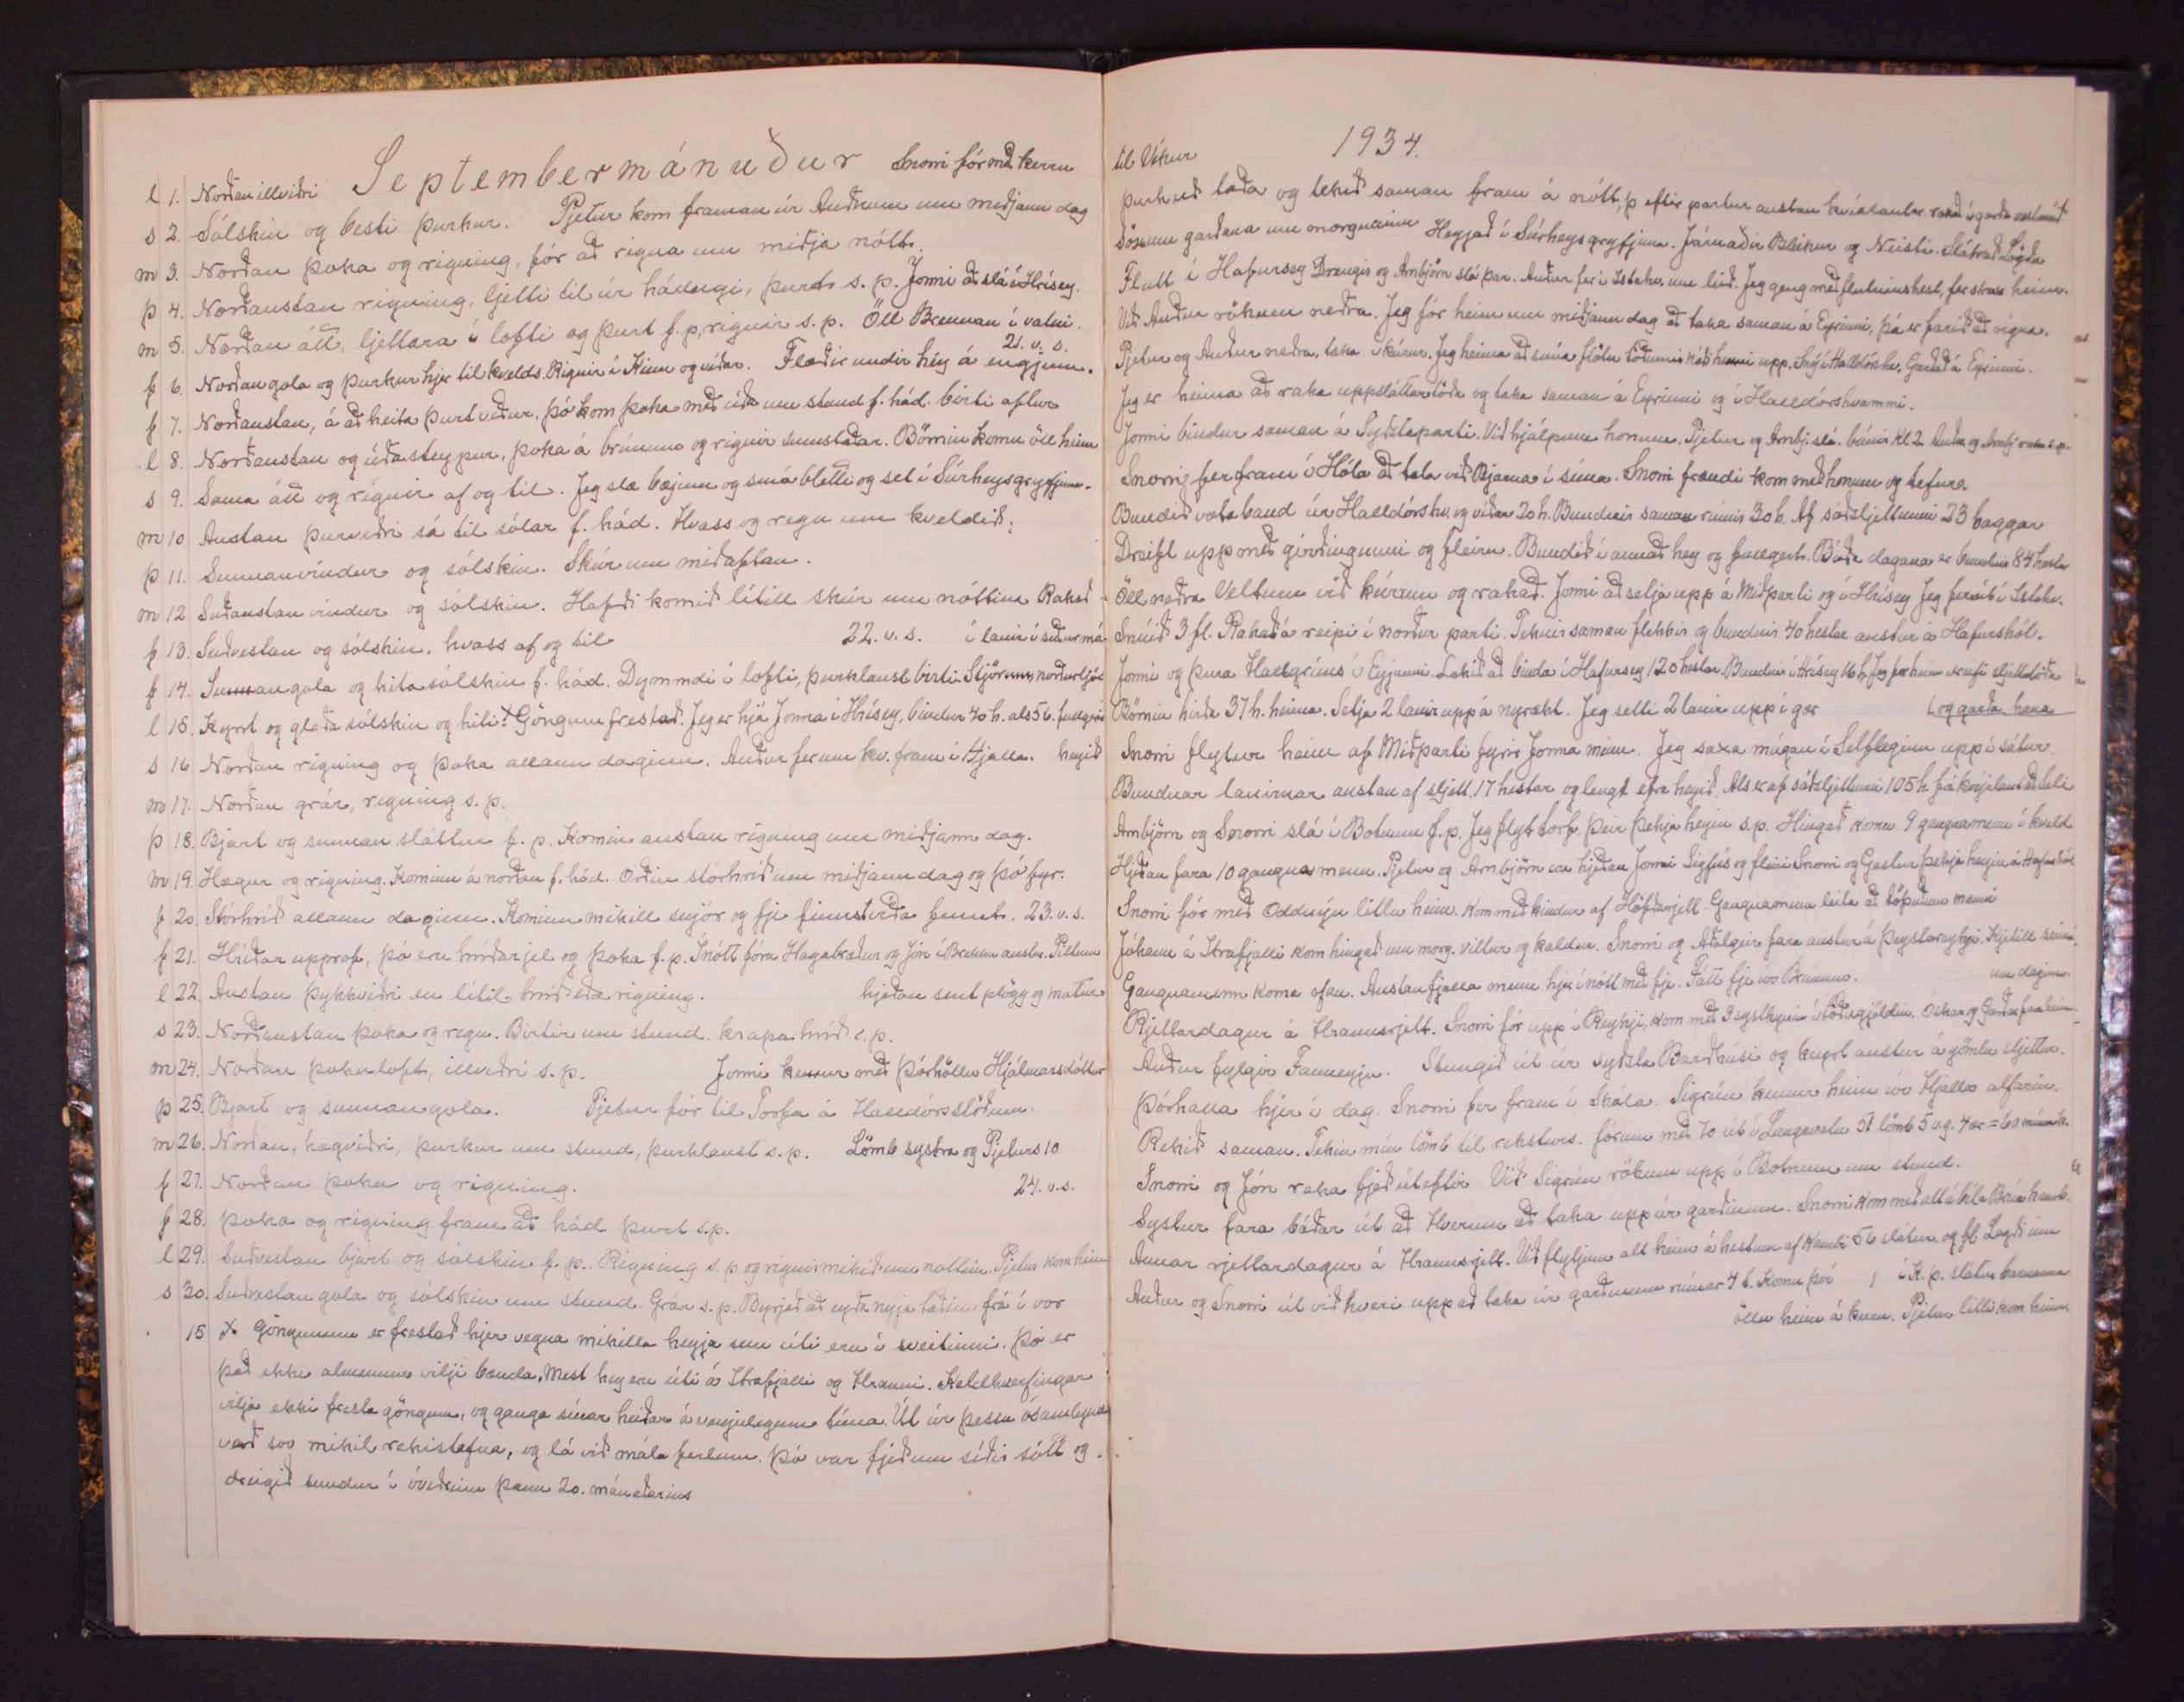 Septembermánuður Snorri fór með kerru
l 1. Norðan illviðri
s 2. Sólskin og besti þurkur. Pjetur kom framan úr Auðnum um miðjann dag
m 3. Norðan þoka og rigning, fór að rigna um miðja nótt.
þ 4. Norðaustan rigning, ljetti til úr hádegi, þurt s.p. Jonni að slá í Hrísey.
m 5. Norðan átt, ljettara í lofti og þurt f.p, rignir s.p. Öll Brennan í vatni.
21. v. s.
f 6. Norðangola og þurkur hjer til kvelds. Rignir í Kinn og víðar. Flæðir undir hey á engjum.
f 7. Norðaustan, á að heita þurt veður, þó kom þoka með úða um stund f. hád. birti aftur
l 8. Norðaustan og úðasteypur, þoka á brúnum og rignir sumstaðar. Börnin komu öll heim
s 9. Sama átt og rignir af og til. Jeg slæ bæjinn og smábletti og set í Súrheysgryfjuna.
m 10 Austan þurviðri sá til sólar f. hád. Hvass og regn um kveldið.
þ 11. Sunnanvindur og sólskin. Skúr um miðaftan.
m 12 Suðaustan vindur og sólskin. Hafði komið lítill skúr um nóttina Rakað
f 13. Suðvestan og sólskin. hvass af og til 22. v. s. í lanir í suðurmó
f 14. Sunnangola og hita sólskin f. hád. Dymmdi í lofti, þurklaust birti Stjörnur, norðurljós
l 15. Kyrt og glaða sólskin og hiti. x Göngum frestað. Jeg er hjá Jonna í Hrísey, bindur 40 h. als 56. fullgjört
s 16 Norðan rigning og þoka allann daginn. Auður fer um kv. fram í Hjalla. heyið
m 17. Norðan grár, rigning s. p.
þ 18. Bjart og sunnan sláttur f. p. Komin austan rigning um miðjann dag.
m 19. Hægur og rigning. Kominn á norðan f. hád. Orðin stórhríð um miðjann dag og þó fyr.
f 20 Stórhríð allann daginn. Kominn mikill snjór og fje finnst víða fennt. 23. v. s.
f 21. Hríðar upprof, þó eru hríðarjel og þoka f. p. Í nótt fóru Hagabræður og Jón í Brekku austur. Piltum
l 22. Austan þykkviðri en lítil hríð eða rigning. hjeðan sent plögg og matur
s 23. Norðaustan þoka og regn. Birtir um stund. krapahríð s. p.
m 24. Norðan þokuloft, illviðri s. p. Jonni kemur með Þórhöllu Hjálmarsdóttur
þ 25. Bjart og sunnangola. Pjetur fór til Torfa á Halldórsstöðum.
m 26. Norðan, hægviðri, þurkur um stund, þurklaust s. p. Lömb systra og Pjeturs 10
f 27. Norðan þoka og rigning. 24. v. s.
f 28. Þoka og rigning fram að hád þurt s.p.
l 29. Suðvestan bjart og sólskin f. p. Rigning s. p. og rignir mikið um nóttina. Pjetur kom heim
s 30. Suðvestan gola og sólskin um stund. Grár s. p. Byrjað að eyða nyja taðinu frá í vor
15 x Göngunum er frestað hjer vegna mikilla heyja sem úti eru í sveitinni. Þó er
það ekki almennur vilji bænda. Mest hey eru úti á Strafjalli og Hrauni. Keldhverfingar
vilja ekki fresta göngum, og ganga sínar heiðar á venjulegum tíma. Út úr þessu ósamlyndi
varð svo mikil rekistefna, og lá við mála ferlum. Þó var fjeð um síðir sótt og
dregið sundur í óveðrinu þann 20. mánaðarins
1934.
til Víkur
Þurkuð taða og tekið saman fram á nótt, þ eftir partur austan kvíalautar rakað í garða
Sönnum garðana um morguninn Heyjað í Súrheysgryfjuna. Járnaðir Bleikur og Neisti. Slátrað Lögðu
Flutt í Hafursey Drengir og Arnbjörn slá þar. Auður fer í Lstekv. um leið. Jeg geng með flutningshest, fer strax heim.
Við Auður rökum neðra. Jeg fór heim um miðjann dag að taka saman á Eyrinni, þá er farið að rigna.
Pjetur og Auður neðra, taka í kúrur. Jeg heima að snúa flötu töðunni náð henni upp. Snýí Halldórshv. Garðað á Eyrinni.
Jeg er heima að raka uppsláttartöðu og taka saman á Eyrinni og í Halldórshvammi.
Jonni bindur saman á Syðstaparti. Við hjálpum honum. Pjetur og Arnbj. slá. búnir kl 2 Auður og Arnbj raka s.p.
Snorri fer fram í Hóla að tala við Bjarna í síma. Snorri frændi kom með honum og tefur.
Bundið votaband úr Halldórshv. og víðar 20 h. Bundnir saman rúmir 30 h. Af sáðsljettunni 23 baggar
Dreift upp með girðingunni og fleiru. Bundið í annað hey og fullgert. Báða dagana er bundnir 84 hestar
Öll neðra Veltum við kúrum og rakað. Jonni að setja upp á Miðparti og í Hrísey Jeg fer út í Lstekv.
Snúið 3 fl. Rakað á reipi í norður parti. Teknir saman flekkir og bundnir 40 hestar austur á Hafurshól.
Jonni og Þura Hallgríms í Eyjunni Lokið að binda í Hafursey 120 hestar. Bundnir í Hrísey 16 h. Jeg fer heim
Börnin hirða 37 h. heima. Setja 2 lanir uppá nyrækt. Jeg setti 2 lanir upp í gær og garða hana
Snorri flytur heim af Miðparti fyrir Jonna minn. Jeg saxa múgan í Selfleginu upp í sátur.
Bundnar lanirnar austan af sljett. 17 hestar og lengt efra heyið. Als er af sáðsljettunni 105 h frá kvíjalaut að telja
Arnbjörn og Snorri slá í Botnum f.p. Jeg flyt torf. Þeir þekja heyin s.p. Hingað koma 9 gangnamenn í kveld
Hjeðan fara 10 gangnamenn. Pjetur og Arnbjörn eru hjeðan Jonni Sigfús og fleiri Snorri og Gestur þekja heyin á Hafurshól
Snorri fór með Oddnýju litlu heim. Kom með kindur af Höfðarjett. Gangnamenn leita að töpuðum manni
Jóhann á Strafjalli kom hingað um morg. villur og kaldur. Snorri og Aðalgeir fara austur á Þeystareykji. Kjetill
um daginn.
Gangnamenn koma ofan. Austanfjalla menn hjer í nótt með fje. Fátt fje úr Brúnum.
Rjettardagur á Hraunsrjett. Snorri fór upp í Reykji, kom með 3 systkyni í töðugjöldin. Óskar og Garðar fara heim
Auður fylgir Fanneyju. Stungið út úr syðsta Barðhúsi og keyrt austur á gömlu sljettu.
Þórhalla hjer í dag. Snorri fer fram í Skála. Sigrún kemur heim úr Hjalla alfarin.
Rekið saman. Tekin mín lömb til reksturs. fórum með 70 út í Langavatn 51 lömb 5 vg. 4 ær = 60
Snorri og Jón reka fjeð úteftir Við Sigrún rökum upp í Botnum um stund.
Systur fara báðar út að Hverum að taka upp úr garðinum. Snorri kom með
Annar rjettardagur á Hraunsrjett. Við flytjum alt heim á hestum af Kambi 56 slátur og fl. Lagði inn
í K. þ. slátur barnanna
Auður og Snorri út við hveri uppað taka úr garðinum rúmar 4 t. Komu því
öllu heim á kerru. Pjetur litli kom heim